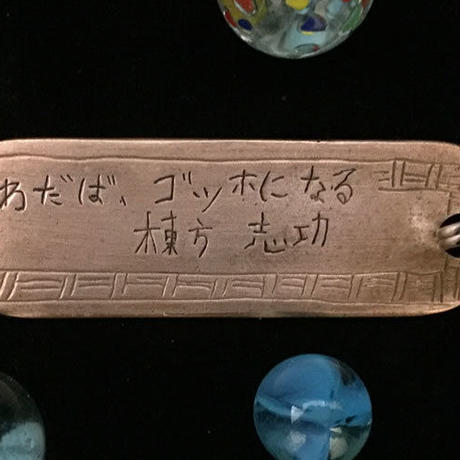 わだば、ゴッホになる
棟方 志功